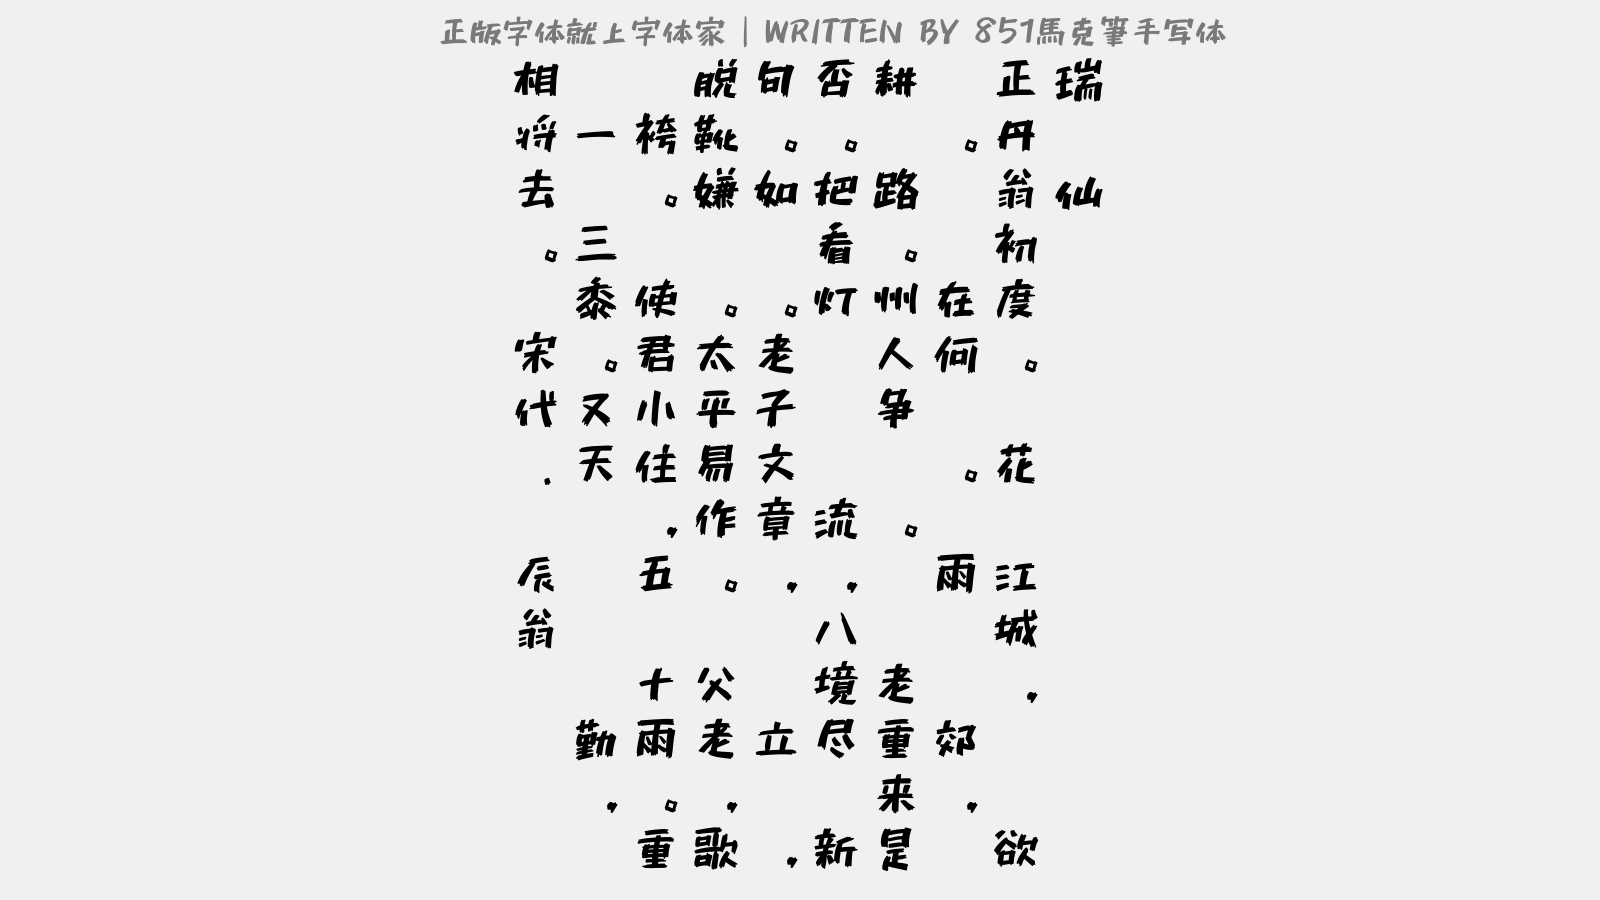 正版字体就上字体家 | WRITTEN BY 851馬克筆手写体
瑞 仙
正丹翁初度。 花 江城， 欲
。 在何 。 雨 郊，
耕 路。州人争 。 老重来是
否。把看灯 流，八境尽新
句 。如 。老子文章， 立 ，
脱靴嫌 。太平易作。 父老，歌
袴 。使君小住，五 十雨。重
一 三黍。又天 勤，
相将去。 宋代 . 辰翁